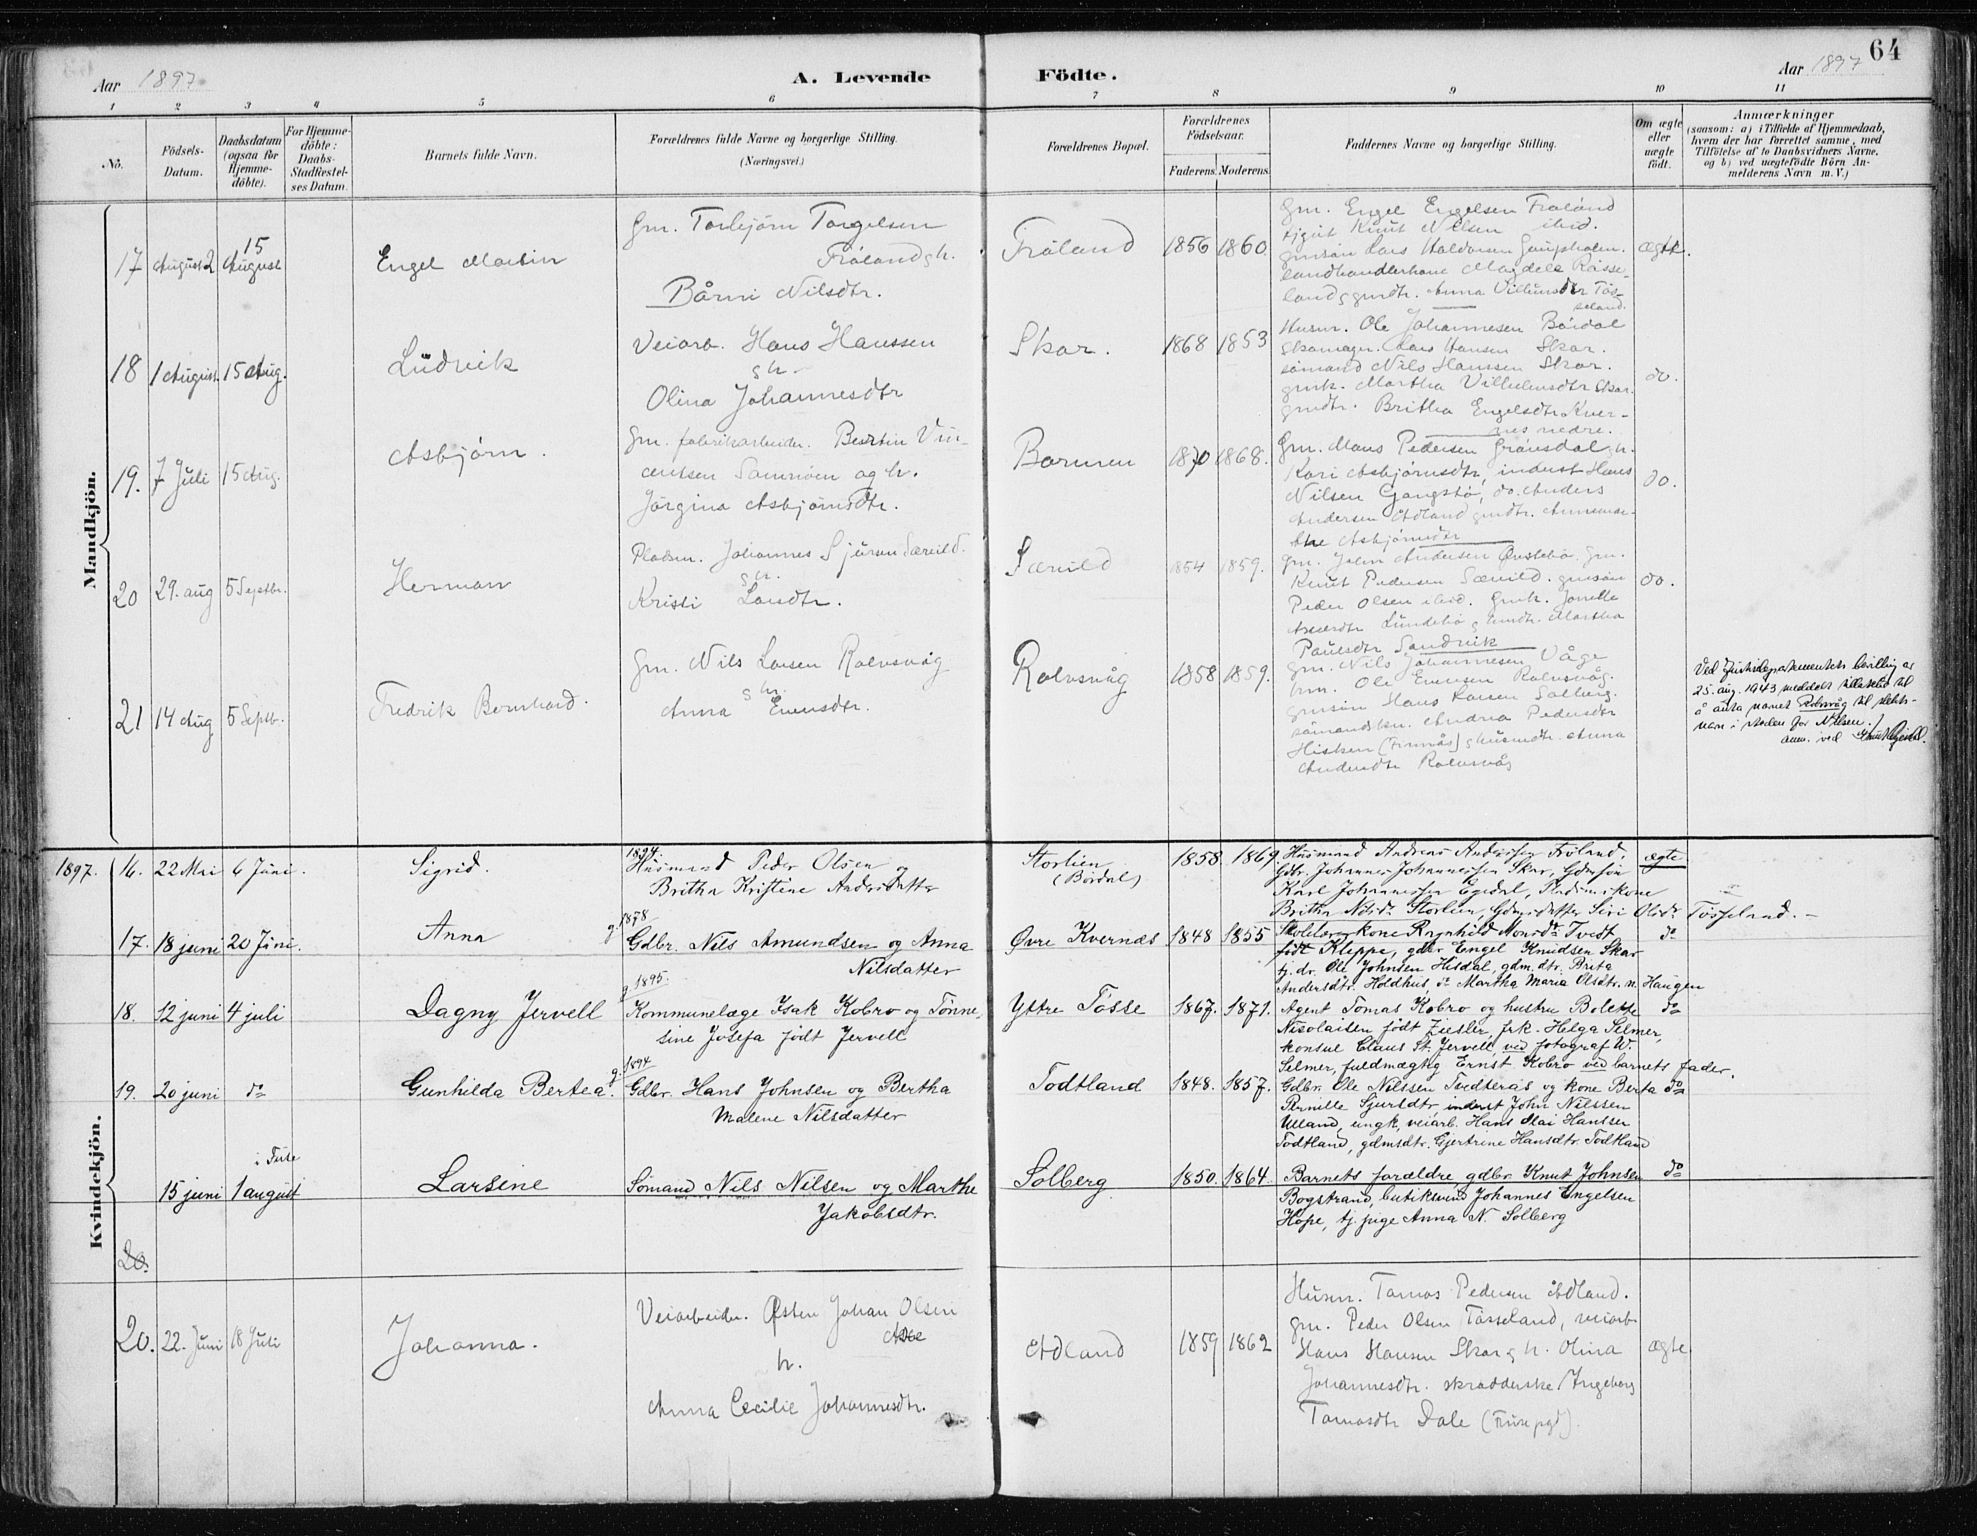 64
Aar 1897. A. Levende Födte. Aar 1897
1 2 3 4 5 6 7 8 9 10 11
No.
Födsels-Datum.
Daabsdatum (ogsaa for Hjemme-döbte).
For Hjemme-döbte: Daabs-Stadfæstel-ses Datum.
Barnets fulde Navn.
Forældrenes fulde Navne og borgerlige Stilling.
(Næringsvei.)
Forældrenes Bopæl.
Forældrenes Födselsaar.
Faderens. Moderens.
Faddernes Navne og borgerlige Stilling.
Om ægte eller uægte födt.
Anmærkninger
(saasom: a) i Tilfælde af Hjemmedaab,
hvem der har forrettet samme, med
Tilföielse af to Daabsvidners Navne,
og b) ved uægtefödte Börn An-
melderens Navn m. V.)
Mandkjön.
17 August 2 15 August Engel Martin
Gm. Torbjørn Torgelsen
Fråland g h.
Bårni Nilsdtr.
Fråland 1856 1860.
Gm. Engel Engelsen Fråland
tjgut Knut Nilsen ibid.
gmsøn Lars Haldorsen Gaupholm.
landhandlerkone Magdele Røsse-
land, gmdtr. Anna Villumsdtr Tøs-
seland.
ægte.
18 1 August. 15 Aug. Ludvik
Veiarb. Hans Hanssen
g h.
Olina Johannesdtr
Skar. 1868 1853
Husm. Ole Johannesen Børdal
Skomager. Lars Hansen Skar.
sømand Nils Hanssen Skar.
gmk. Martha Vilhelmsdtr Skar.
gmdtr. Britha Engelsdtr Kver-
nes nedre.
do.
19. 7 Juli 15 Aug. Asbjørn.
Gm. fabrikarbeider. Bertin Vin-
centsen Samnøen og h.
Jørgina Asbjørnsdtr.
Barmen 1870 1868.
Gm. Mons Pedersen Grønsdal g h.
Kari Asbjørnsdtr, inderst Hans
Nilsen Gangstø, do. Anders
Andersen Ådland gmdtr. Annema-
thre Asbjørnsdtr
do.
20 29. aug 5 Septbr. Herman
Pladsm. Johannes Sjursen Særvild.
g h.
Kristi Larsdtr.
Særvild 1854 1859.
Gm. John Andersen Øvstebø. Gm.
Knut Pedersen Særvild. gmsøn
Peder Olsen ibid. Gmk. Jonette
Lundebø g gmdtr. Martha
Paulsdtr Sandvik
do.
21 14 Aug 5 Septbr. Fredrik Bernhard.
Gm. Nils Larsen Rolvsvåg
g h.
Anna Evensdtr.
Rolvsvåg 1858 1859.
Gm. Nils Johannesen Våge
Gm. Ole Evensen Rolvsvåg.
Gmsøn Hans Larsen Solberg.
sømandskn. Andrea Pedersdtr
Hisken (Finnås) g husmdtr. Anna
Andersdtr Rolvsvåg
Ved Justisdepartementets bevilling av
25. aug. 1943 meddelt tillatelse til
å anta navnet Rolvsvåg til slekts-
navn i steden for Nilsen.
anm. ved
1897. Kvindekjön.
16. 22 Mai 6 Juni. Sigrid.
1894.
Husmand Peder Olsen og
Britha Kristine Andersdatter
Storlien (Bördal) 1858. 1869
Husmand Andreas Andersen Fröland.
Gdbr. Johannes Johannessen Skar, Gdmsøn
Karl Johannessen Egedal, Pladsmskone
Britha Nilsdr Storlien, Gdmsdatter Siri Olsdr Tösseland.
ægte
17. 18 juni 20 Juni. Anna
g. 1878
Gdbr. Nils Amundsen og Anna
Nilsdatter
Øvre Kvernæs 1848 1855
Skolelærerkone Ragnhild Monsdr Tvedt
född Kleppe, gdbr. Engel Knudsen Skar
tj. dr. Ole Johnsen Hisdal, gdm.dtr. Brita
Andersdtr. Holdhus, do Martha Maria Olsdtr. n. Haugen
do
18. 12 juni 4 juli Dagny Jervell
g. 1895.
Kommunelæge Isak Kobro og Tönne-
sine Josefa född Jervell
Yttre Tösse 1867. 1871.
Agent Tomas Kobro og hustru Bolette
Nicolaisen född Ziesler, frk. Helga Selmer,
konsul Claus St. Jervell, ved fotograf W.
Selmer, fuldmægtig Ernst Kobro ved barnets fader.
do
19. 20 juni do Gunhilda Bertea.
g. 1894
Gdbr. Hans Johnsen og Bertha
Malene Nilsdatter
Todtland 1848. 1857.
Gdbr. Ole Nilssen Tvedterås og kone Berta
Pernille Sjursdtr, inderst John Nilssen
Ulland, ungk. veiarb. Hans Mai Hanssen
Todtland, gdmsdtr. Gjertrine Hansdtr. Todtland
do
15 juni i Fuse 1 august Larsine
Sömand Nils Nilsen og Marthe
Jakobsdtr.
Solberg 1850. 1864.
Barnets forældre, gdbr. Knut Johnsen
Bogstrand, butiksvend Johannes Engelsen
Hope, tj. pige Anna N. Solberg
do
20.
20. 22. Juni 18 Juli Johanna.
Veiarbeider. Østen Johan Olsen
h.
Anna Cecilie Johannesdtr.
Ådland 1859 1862
Husm. Tomas Pedersen Ådland.
gm. Peder Olsen Tøsseland, veiarb.
Hans Hansen Skar g h. Olina
Johannesdtr. skrædderske Ingeborg
Tomasdtr Dale (Fuse pgd).
ægte